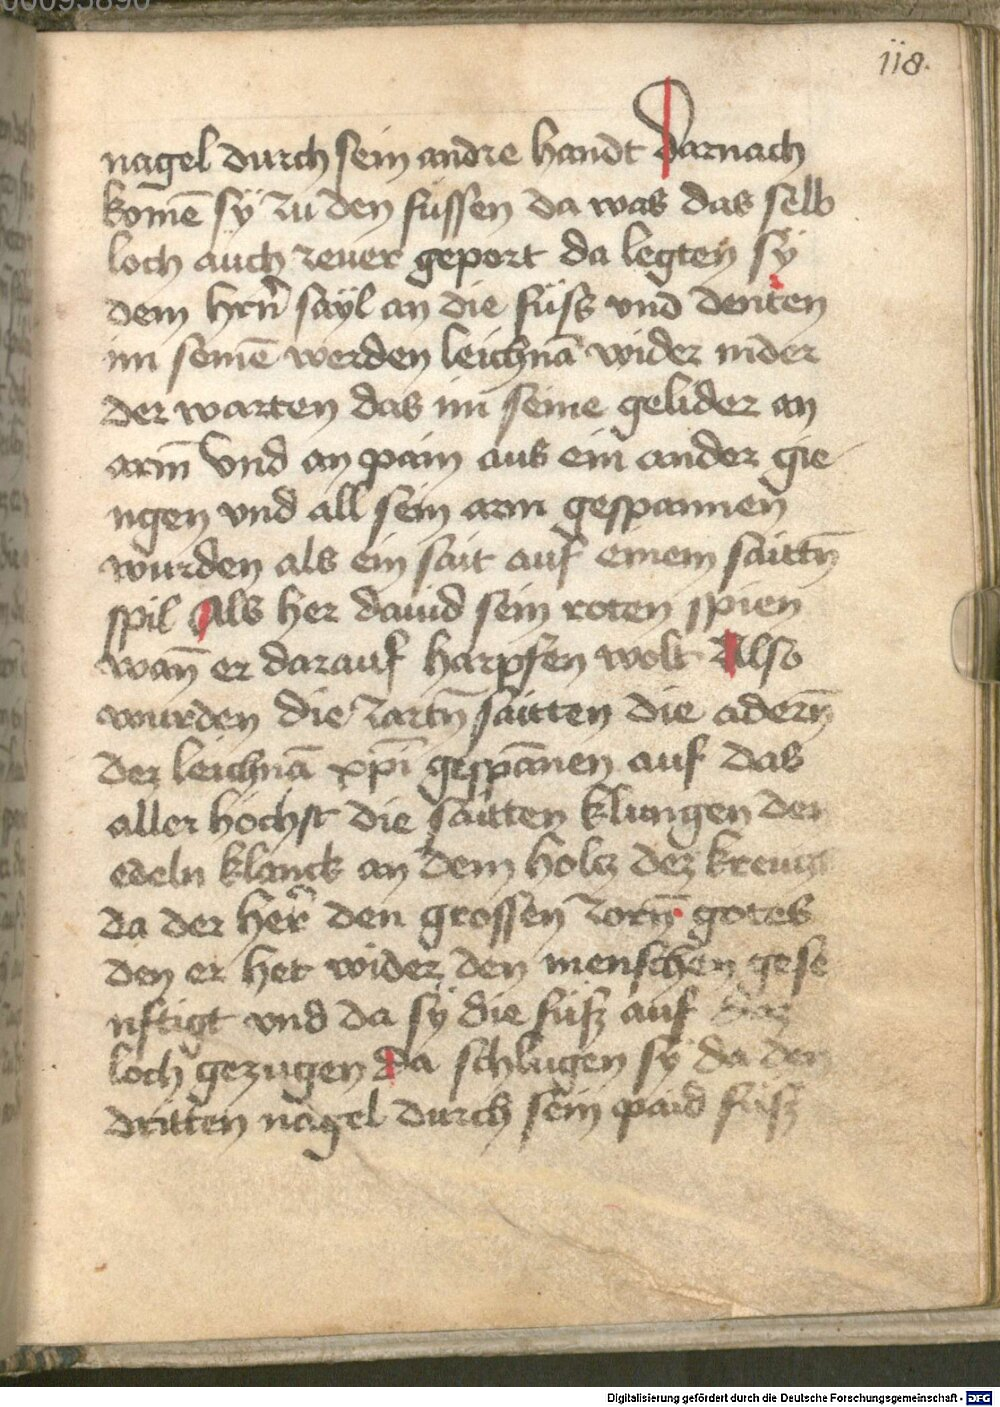 00095890
118.
nagel durch sein andre handt Darnach
komē sÿ zu den füssen da was das selb
loch auch zeuer geport da legten sÿ
dem hrn̄ säyl an die füß vnd denten
im seinē werden leichnā wider nider
der warten das im seine gelider an
arm̄ vnd an pain aus ein ander gie
ngen vnd all sein arm gespannen
wurden als ein sait auf einem saittn̄
spil Als her dauid sein roten spien
wan̄ er darauf harpfen wolt Also
wurden die zartn̄ saitten die adern̄
dez leichnā xp̄i gespānen auf das
aller höchst die saitten klungen den
edeln klanck an dem holcz dez kreucz
da der her̄ den grossen zorn̄ gotes
den er het wider den menschen gese
nftigt vnd da sÿ die füß auf daz
loch gezugen da schlugen sÿ da den
dritten nagel durch sein paid füß
Digitalisierung gefördert durch die Deutsche Forschungsgemeinschaft - DFG